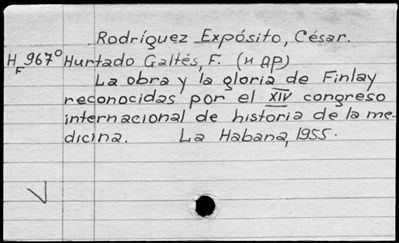 Rodríguez Expósito, César.
HF 967° Hurtado Galtés, F. (n AP)
La obra y la gloria de Finlay
reconocidas por el XIV congreso
internacional de historia de la me-
dicina. La Habana, 1955.